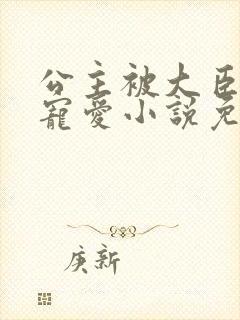 公主被大臣
寵愛小說免
庚新